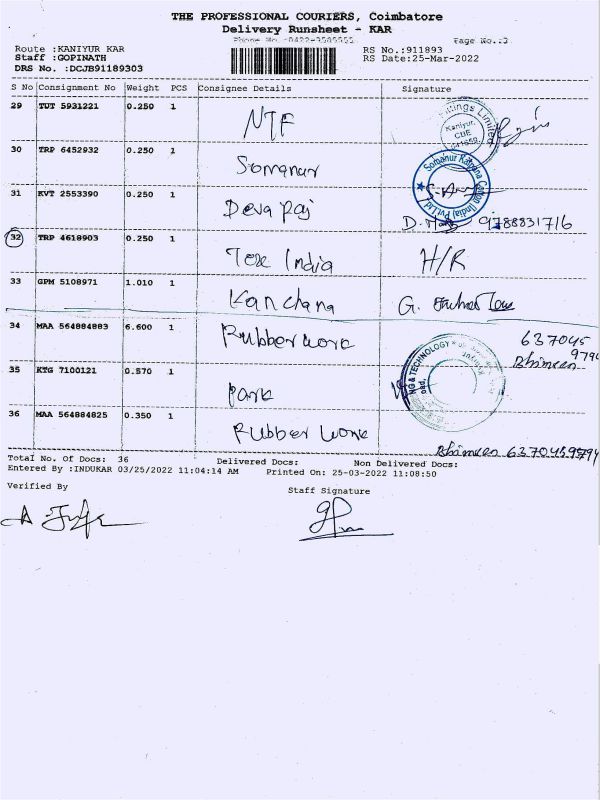 THE PROFESSIONAL COURIERS, Coimbatore
Delivery Runsheet - KAR
Page No.:3
Route :KANIYUR KAR
RS No.:911893
Staff :GOPINATH
RS Date:25-Mar-2022
DRS No. :DCJB91189303
S No Consignment No Weight PCS Consignee Details Signature
29 TUT 5931221 0.250 1 NTF
Kaniyur,
CBE
30 TRP 6452932 0.250 1 Somanur
31 KVT 2553390 0.250 1 Devaraj
9788831716
32 TRP 4618903 0.250 1 Tex India H/R
33 GPM 5108971 1.010 1 Kanchana G.
34 MAA 564884883 6.600 1 Rubber work
637045
979
35 KTG 7100121 0.570 1 Park
36 MAA 564884825 0.350 1 Rubber work
6370459794
Total No. Of Docs: 36 Delivered Docs: Non Delivered Docs:
Entered By :INDUKAR 03/25/2022 11:04:14 AM Printed On: 25-03-2022 11:08:50
Verified By Staff Signature